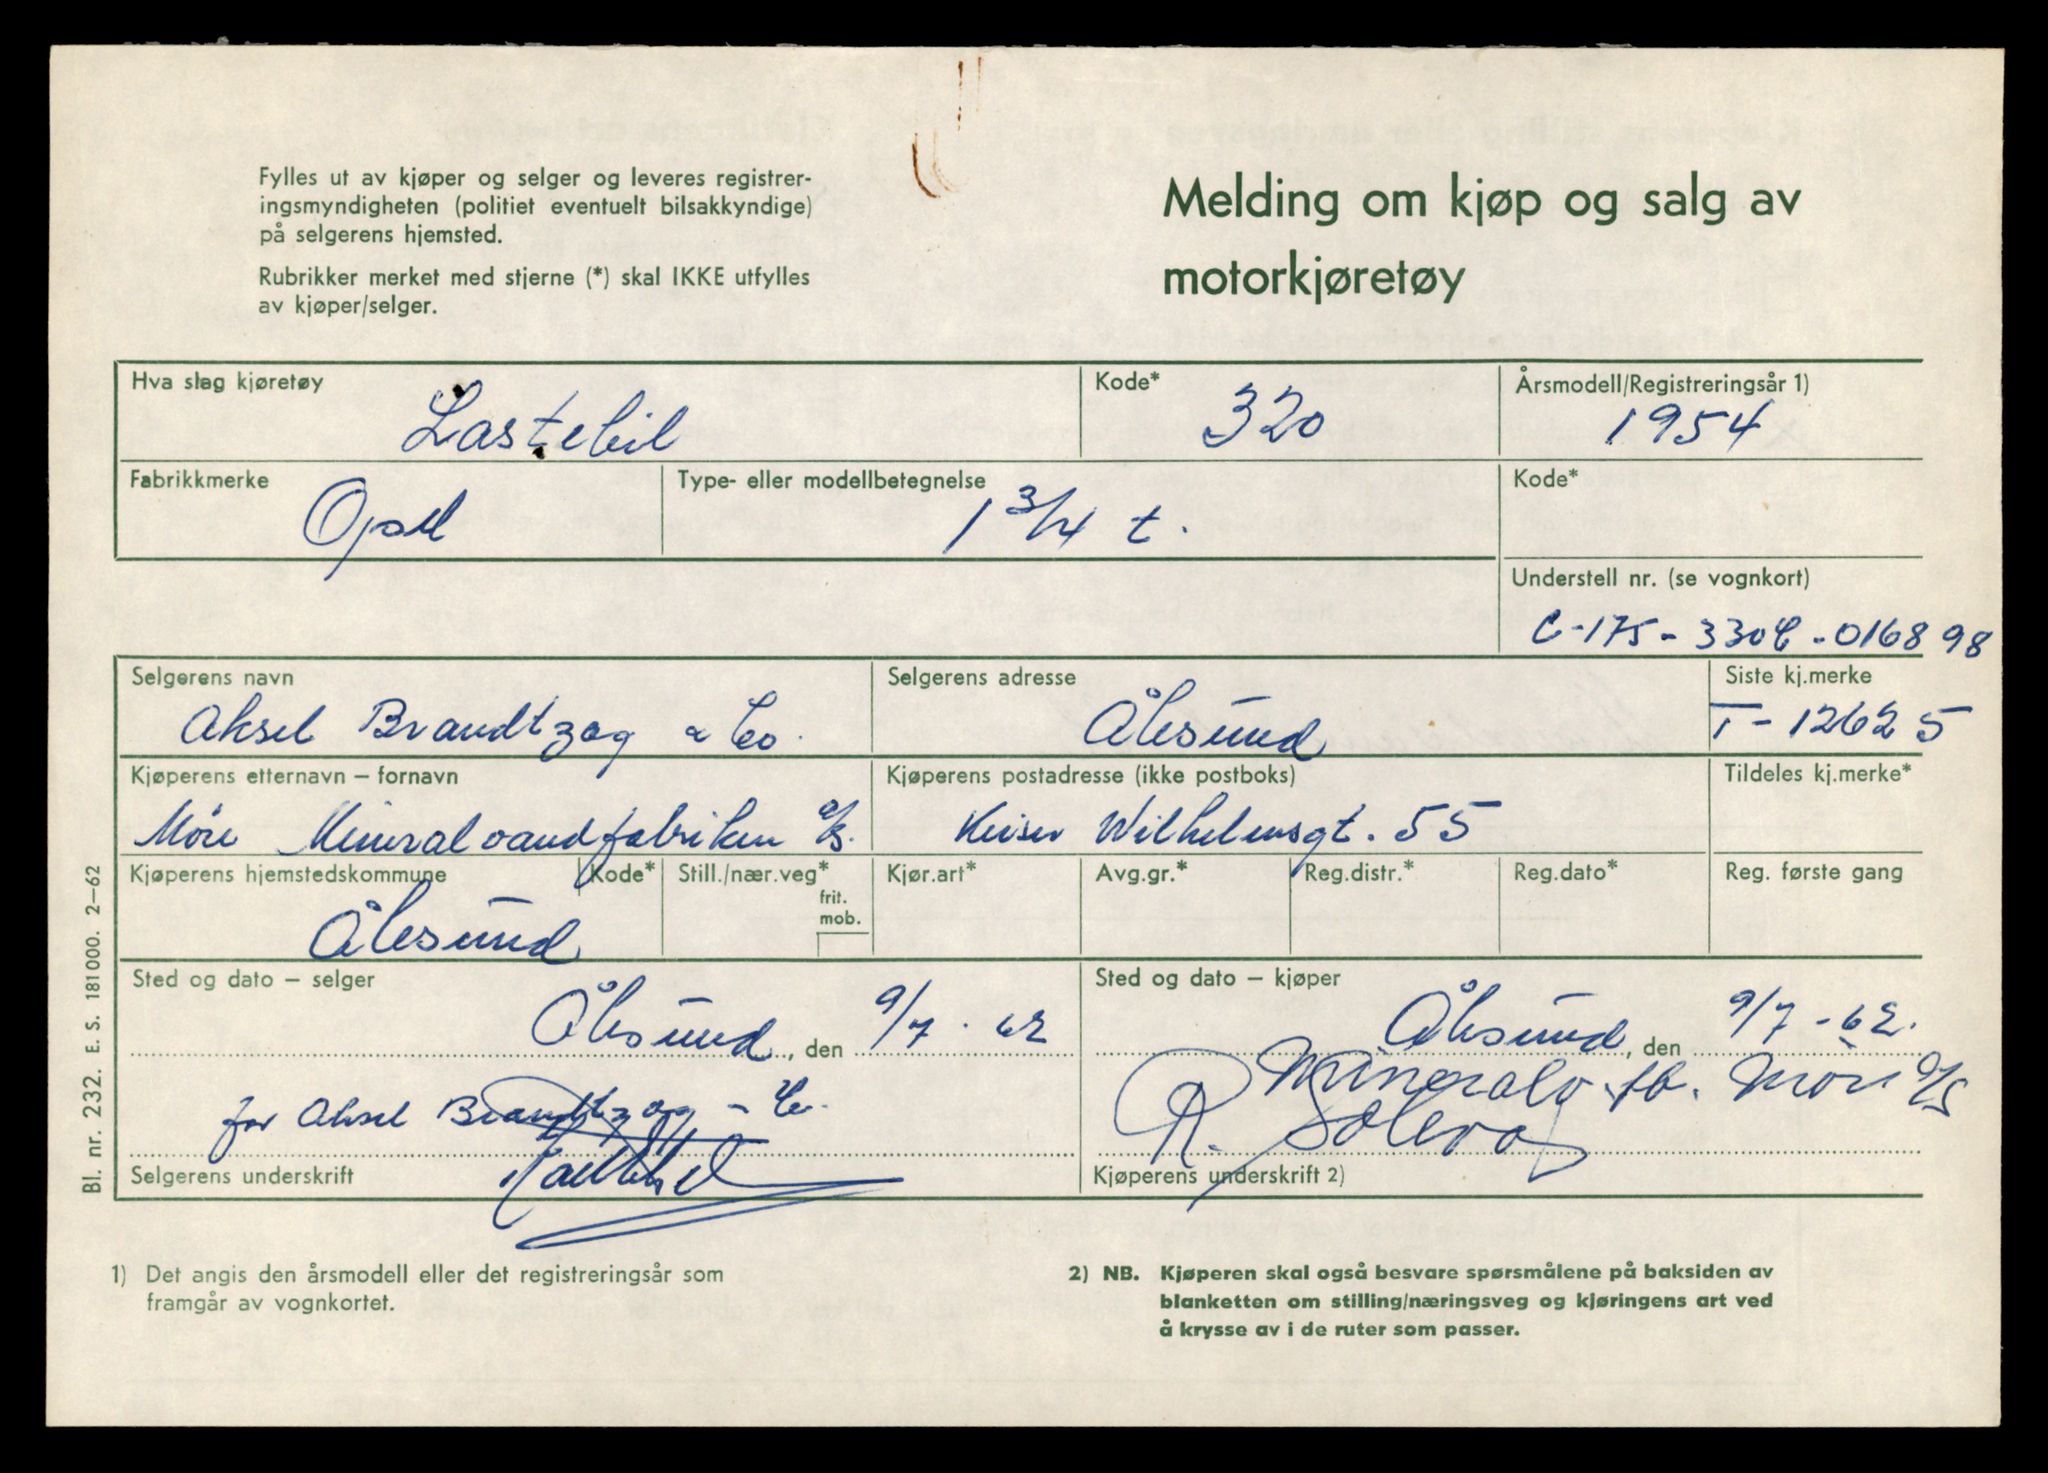 Fylles ut av kjøper og selger og leveres registrer-
ingsmyndigheten (politiet eventuelt bilsakkyndige)
på selgerens hjemsted.
Rubrikker merket med stjerne (*) skal IKKE utfylles
av kjøper/selger.
Melding om kjøp og salg av
motorkjøretøy
Hva slag kjøretøy
Lastebil
Kode*
320
Årsmodell/Registreringsår 1)
1954
Fabrikkmerke
Opel
Type- eller modellbetegnelse
1 3/4 t.
Kode*
Understell nr. (se vognkort)
C-175-330C-016898
Selgerens navn
Aksel Brandtzæg & Co.
Selgerens adresse
Ålesund
Siste kj.merke
T-12625
Kjøperens etternavn – fornavn
Møre Mineralvandfabriken a/s.
Kjøperens postadresse (ikke postboks)
Keiser Wilhelmsgt. 55
Tildeles kj.merke*
Kjøperens hjemstedskommune
Ålesund
Kode*
Still./nær.veg*
frit.
mob.
Kjør.art*
Avg.gr.*
Reg.distr.*
Reg.dato*
Reg. første gang
Sted og dato – selger
Ålesund, den 9/7-62
for Aksel Brandtzæg & Co.
Selgerens underskrift
Sted og dato – kjøper
Ålesund, den 9/7-62.
Mineralv.fb. Møre a/s
R.
Kjøperens underskrift 2)
Bl. nr. 232. E. S. 181000. 2–62
1) Det angis den årsmodell eller det registreringsår som
framgår av vognkortet.
2) NB. Kjøperen skal også besvare spørsmålene på baksiden av
blanketten om stilling/næringsveg og kjøringens art ved
å krysse av i de ruter som passer.